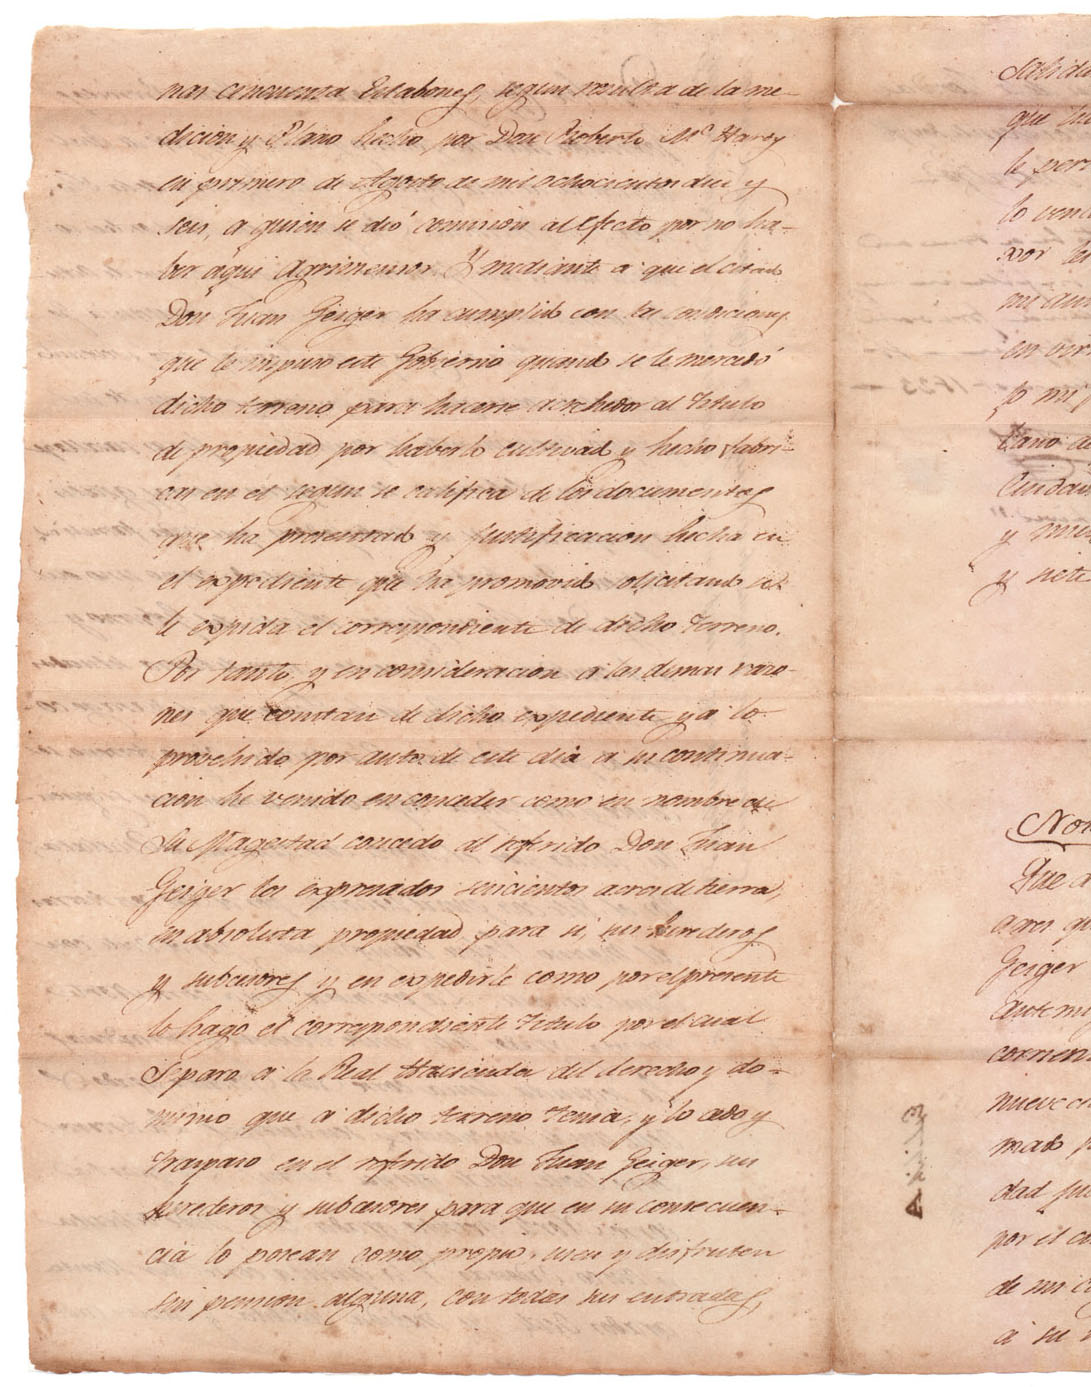 nas cincuenta Eslabones, segun resulta de la me-
dicion y Plano hecho por Don Roberto Mc Hardy
en primero de Agosto de mil ochocientos diez y
seis, a quien se dió comision al efecto por no ha-
ber aqui Agrimensor. Y mediante a que el citado
Don Juan Geiger ha cumplido con las condiciones
que le impuso este Gobierno quando se le mercedó
dicho terreno para hacerse acrehedor al titulo
de propiedad por haberlo cultivado y hecho fabri-
cas en el segun se califica de los documentos
que ha presentado y justificacion hecha en
el expediente que ha promovido solicitando se
le expida el correspondiente de dicho terreno.
Por tanto y en consideracion a las demas razo-
nes que constan de dicho expediente y a lo
provehido por auto de este dia a su continua-
cion he venido en conceder como en nombre de
Su Magestad concedo al referido Don Juan
Geiger los expresados seiscientos acres de tierra,
en absoluta propiedad para si, sus herederos
y subcesores y en expedirle como por el presente
lo hago el correspondiente titulo por el cual
Separo a la Real Hacienda del derecho y do-
minio que a dicho terreno tenia, y lo cedo y
traspaso en el referido Don Juan Geiger, sus
herederos y subcesores para que en su consecuen-
cia lo posean como propio, usen y disfruten
sin pension alguna, con todas sus entradas,
Salida
que hu
le per
lo
por
en
lo mi
y
y siete
Not
Que a
acres qu
Geiger
ante mi
corrien
nueve
mado p
dad
por el c
de mi c
a su